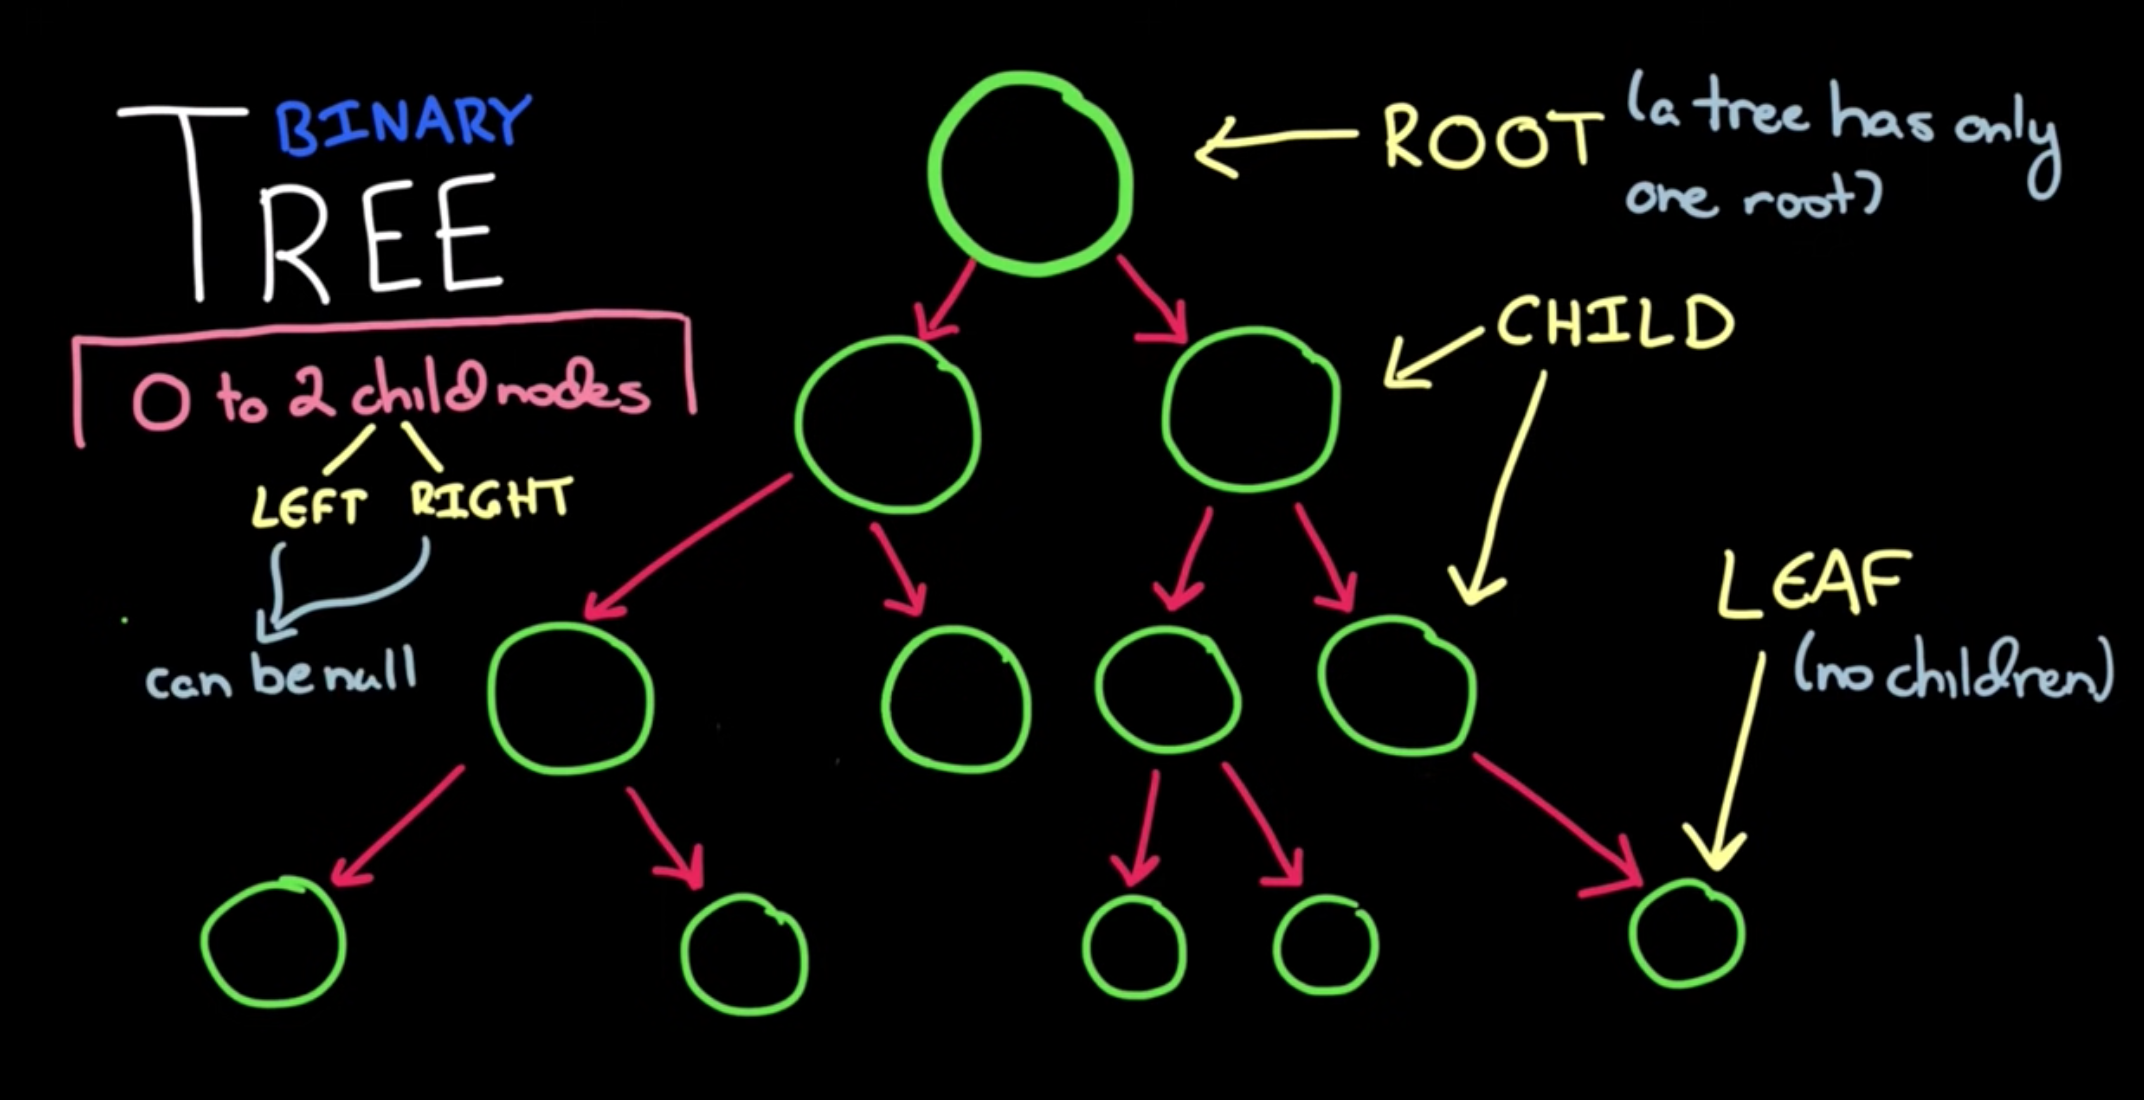 BINARY
TREE
0 to 2 child nodes
LEFT RIGHT
can be null
ROOT (a tree has only
one root)
CHILD
LEAF
(no children)